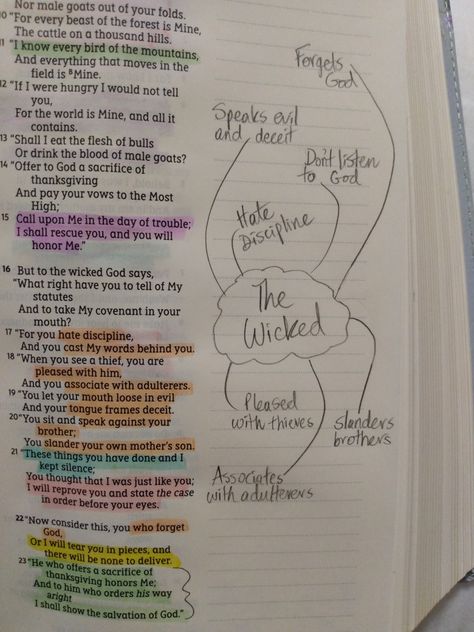 Nor male goats out of your folds.
10 "For every beast of the forest is Mine,
The cattle on a thousand hills.
11 "I know every bird of the mountains,
And everything that moves in the
field is ᵃMine.
12 "If I were hungry I would not tell
you,
For the world is Mine, and all it
contains.
13 "Shall I eat the flesh of bulls
Or drink the blood of male goats?
14 "Offer to God a sacrifice of
thanksgiving
And pay your vows to the Most
High;
15 Call upon Me in the day of trouble;
I shall rescue you, and you will
honor Me."
16 But to the wicked God says,
"What right have you to tell of My
statutes
And to take My covenant in your
mouth?
17 "For you hate discipline,
And you cast My words behind you.
18 "When you see a thief, you are
pleased with him,
And you associate with adulterers.
19 "You let your mouth loose in evil
And your tongue frames deceit.
20 "You sit and speak against your
brother;
You slander your own mother's son.
21 "These things you have done and I
kept silence;
You thought that I was just like you;
I will reprove you and state the case
in order before your eyes.
22 "Now consider this, you who forget
God,
Or I will tear you in pieces, and
there will be none to deliver.
23 "He who offers a sacrifice of
thanksgiving honors Me;
And to him who orders his way
aright
I shall show the salvation of God."
Forgets
God
Speaks evil
and deceit
Don't listen
to God
Hate
Discipline
The
Wicked
Pleased
with thieves
slanders
brothers
Associates
with adulterers